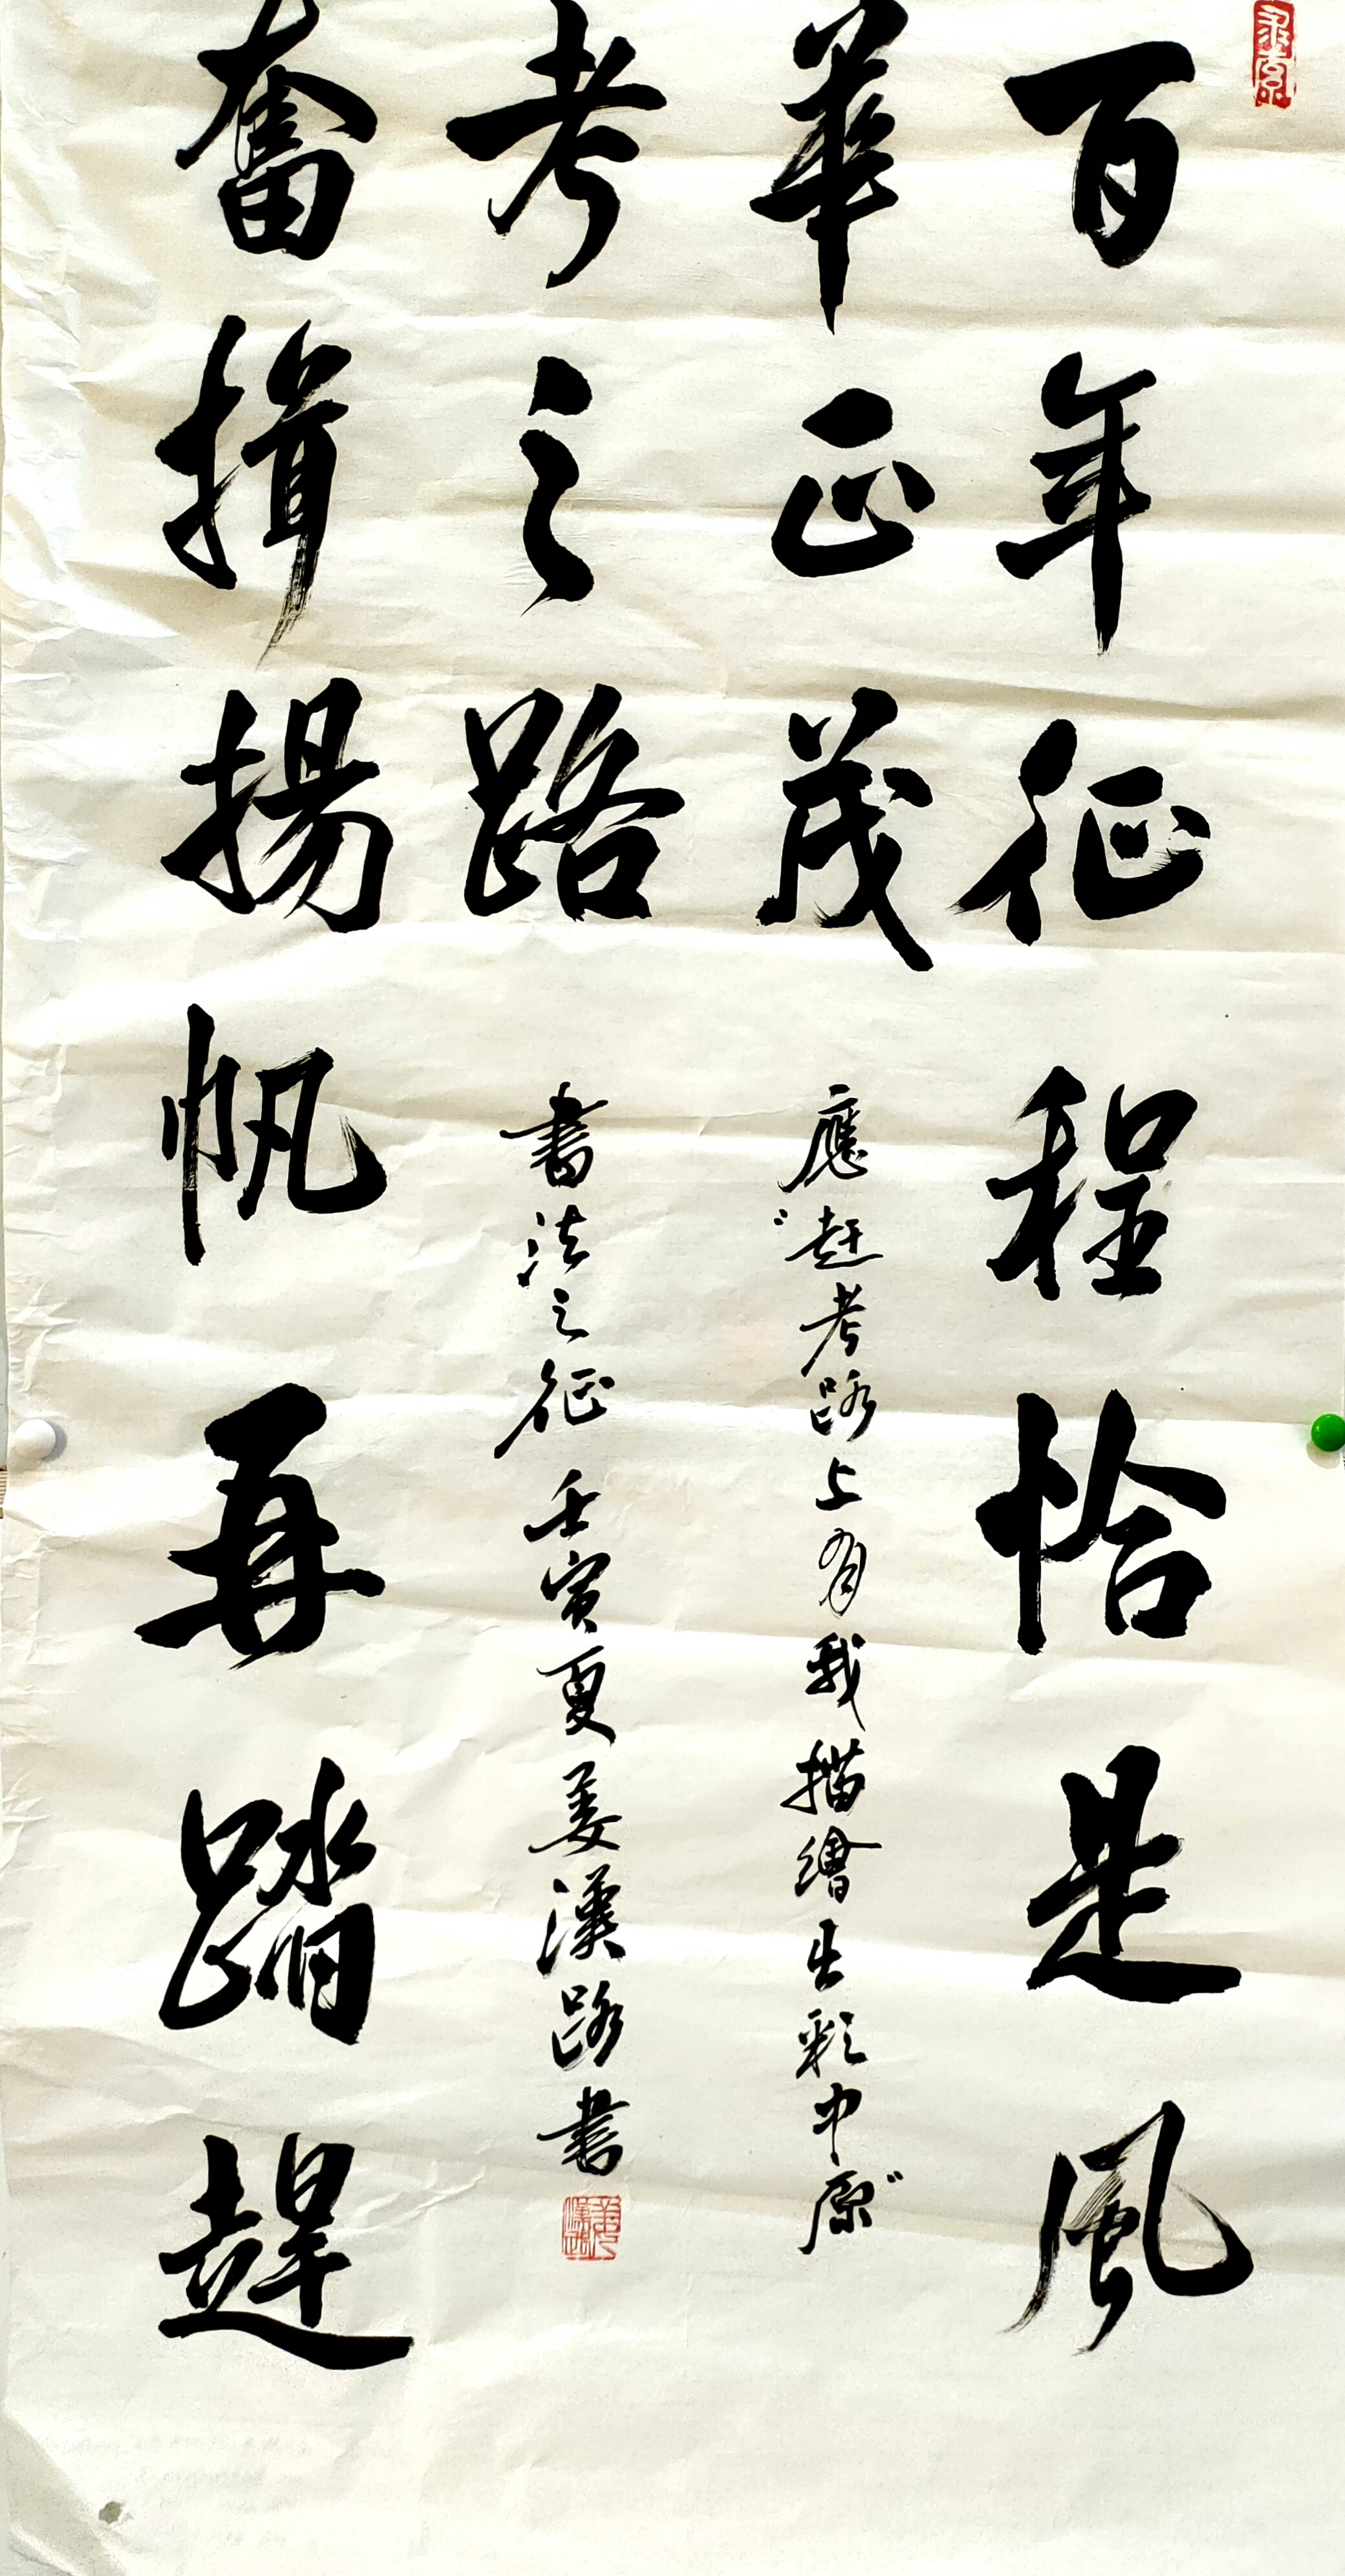 百年征程恰是風
華正茂
奮揖揚帆再踏趕
考之路
應“赶考路上有我描繪出彩中原”
書法之征壬寅夏姜漢路書
求索